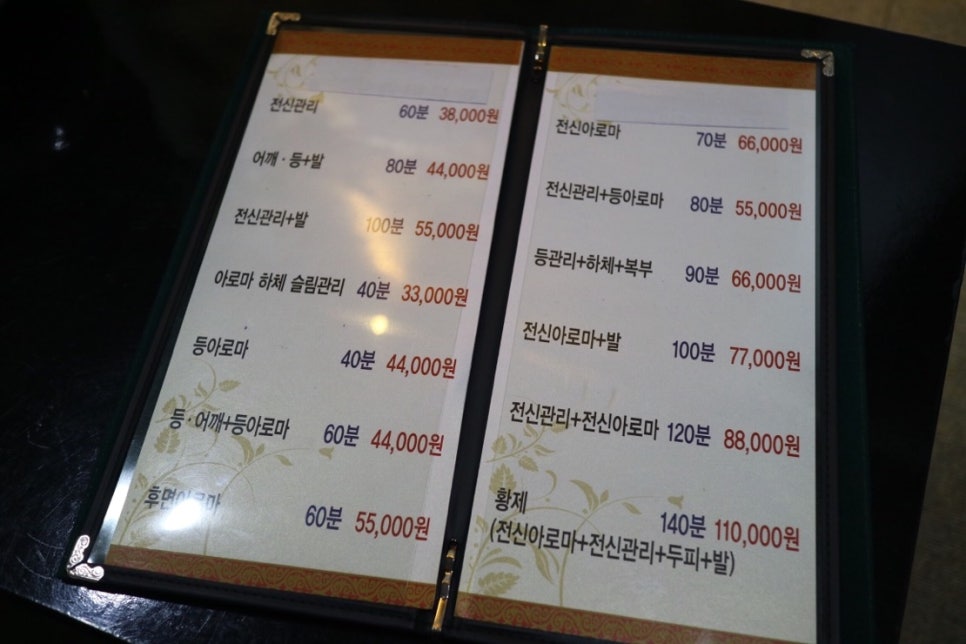 전신관리 60분 38,000원
어깨·등+발 80분 44,000원
전신관리+발 100분 55,000원
아로마 하체 슬림관리 40분 33,000원
등아로마 40분 44,000원
등·어깨+등아로마 60분 44,000원
후면아로마 60분 55,000원
전신아로마 70분 66,000원
전신관리+등아로마 80분 55,000원
등관리+하체+복부 90분 66,000원
전신아로마+발 100분 77,000원
전신관리+전신아로마 120분 88,000원
황제 140분 110,000원
(전신아로마+전신관리+두피+발)